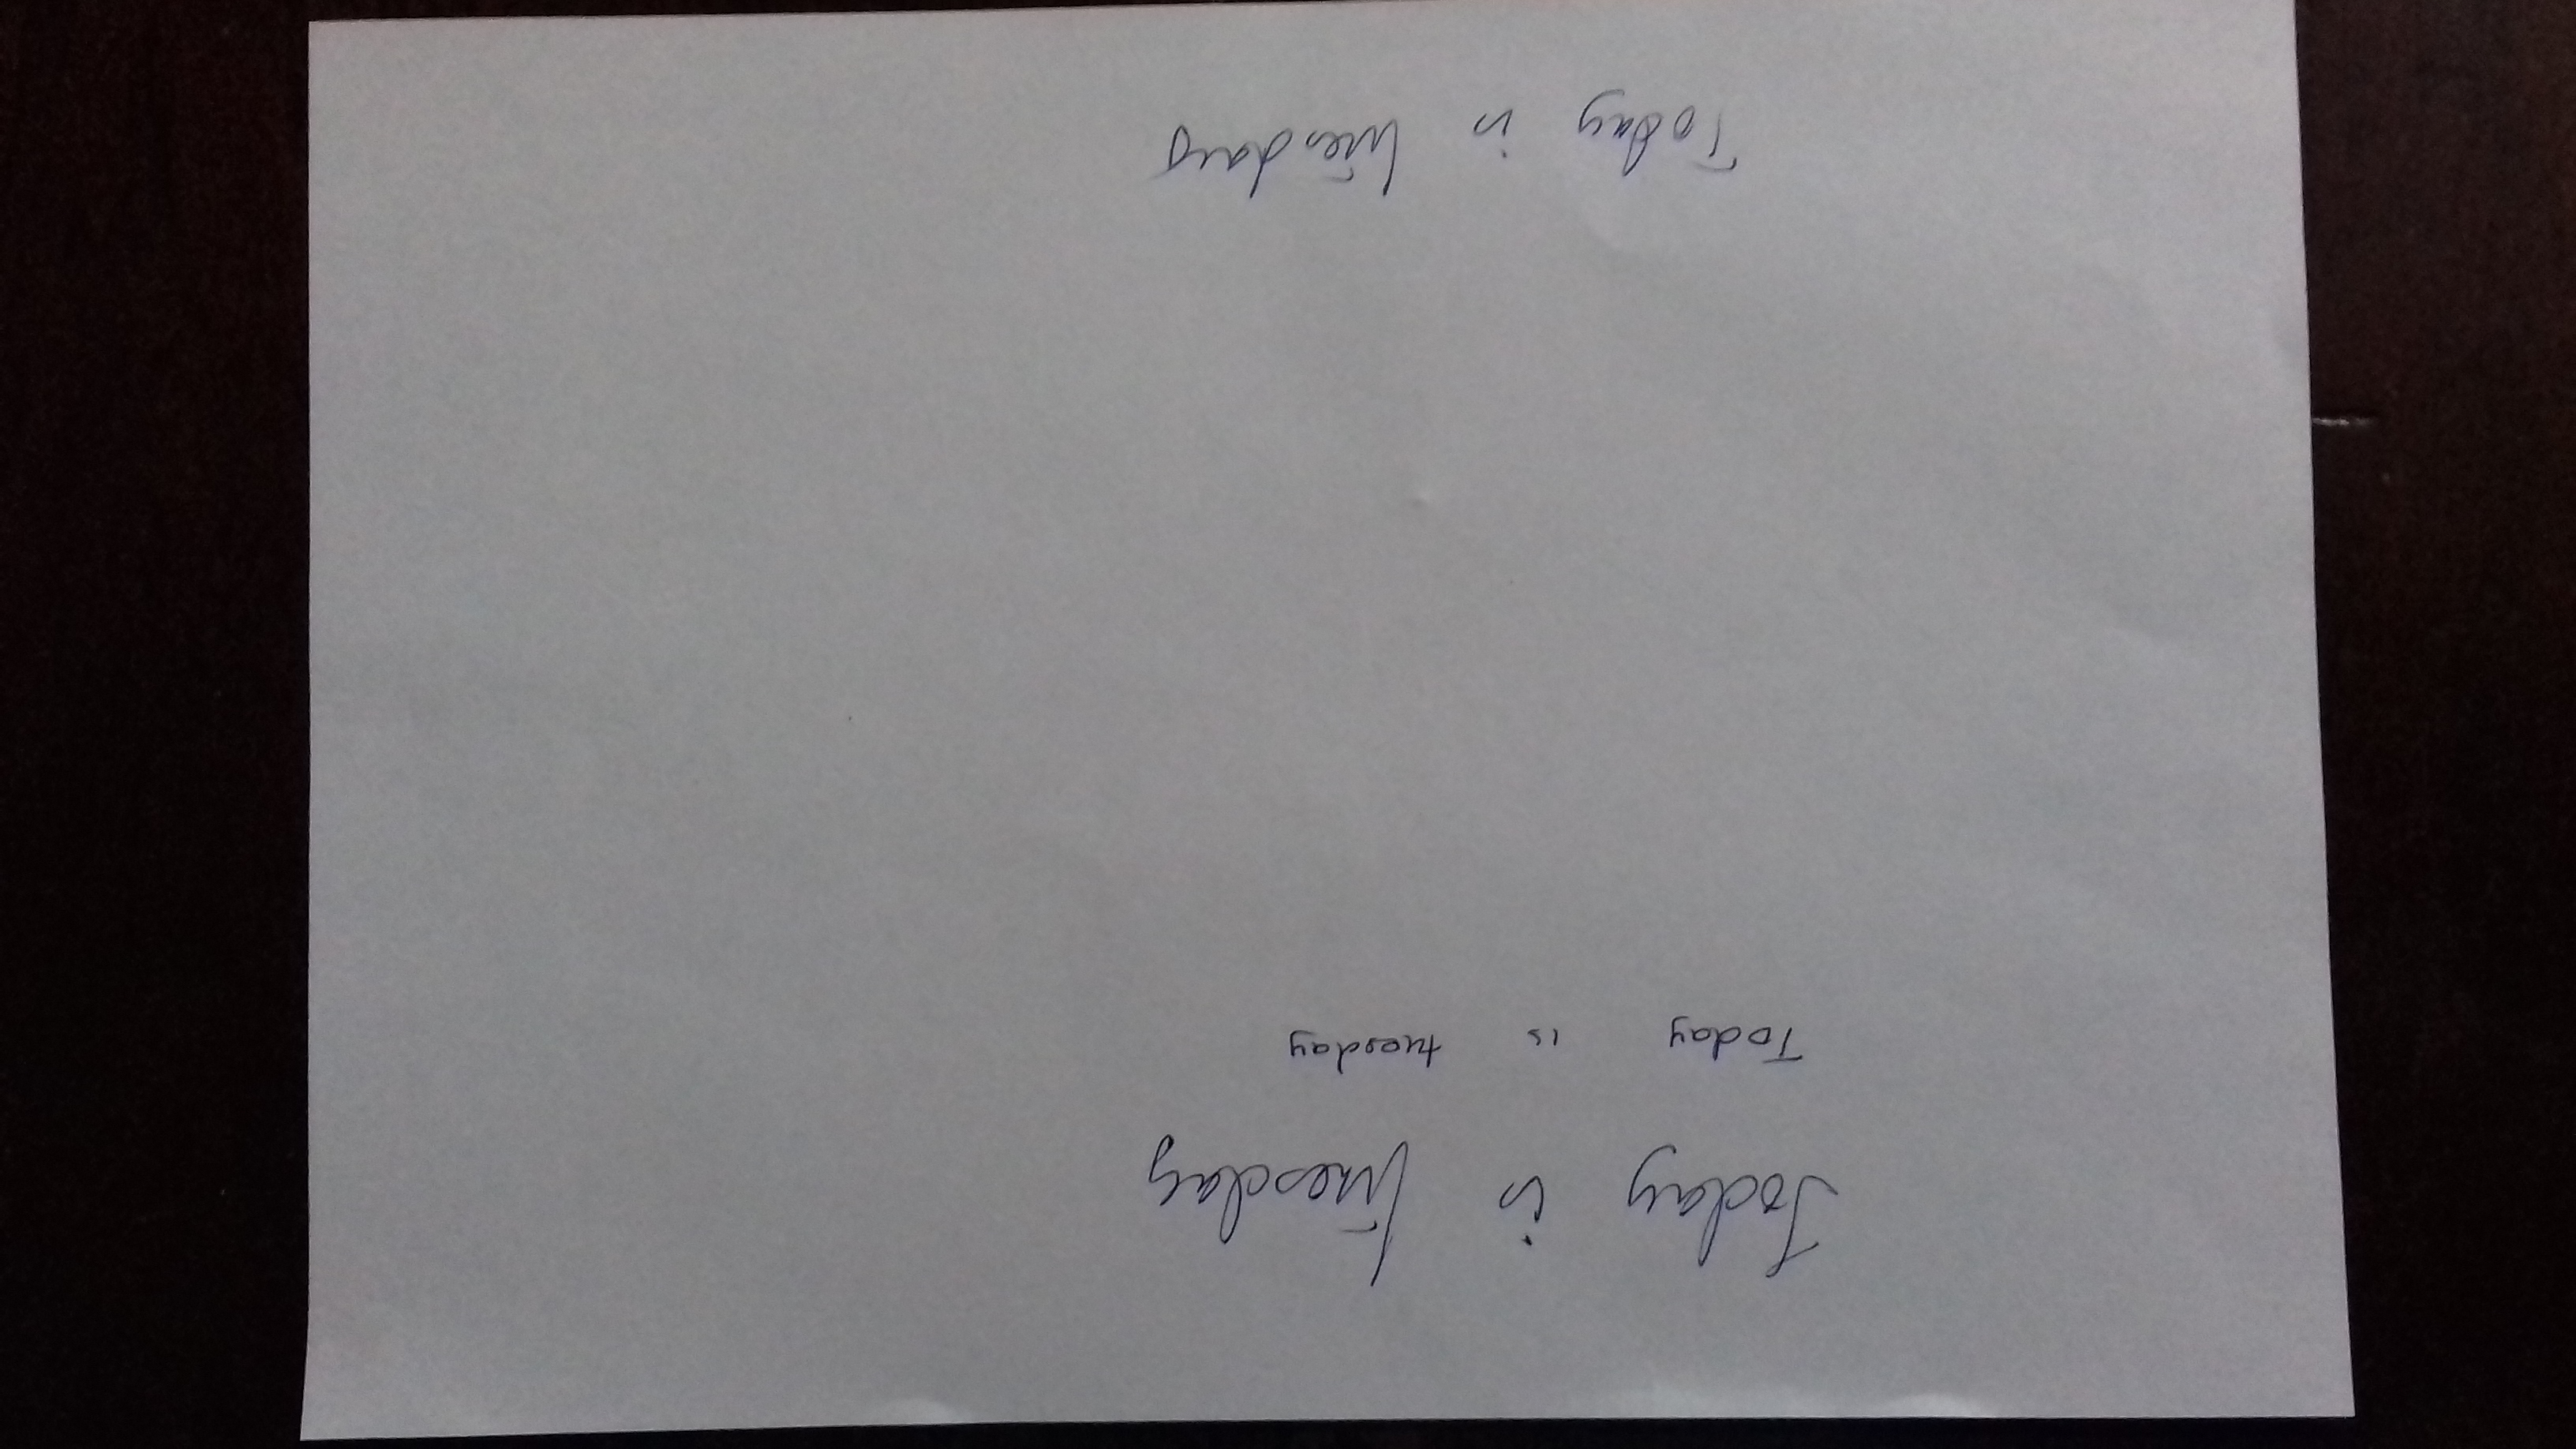 Today is Tuesday
Today is tuesday
Today is tuesday